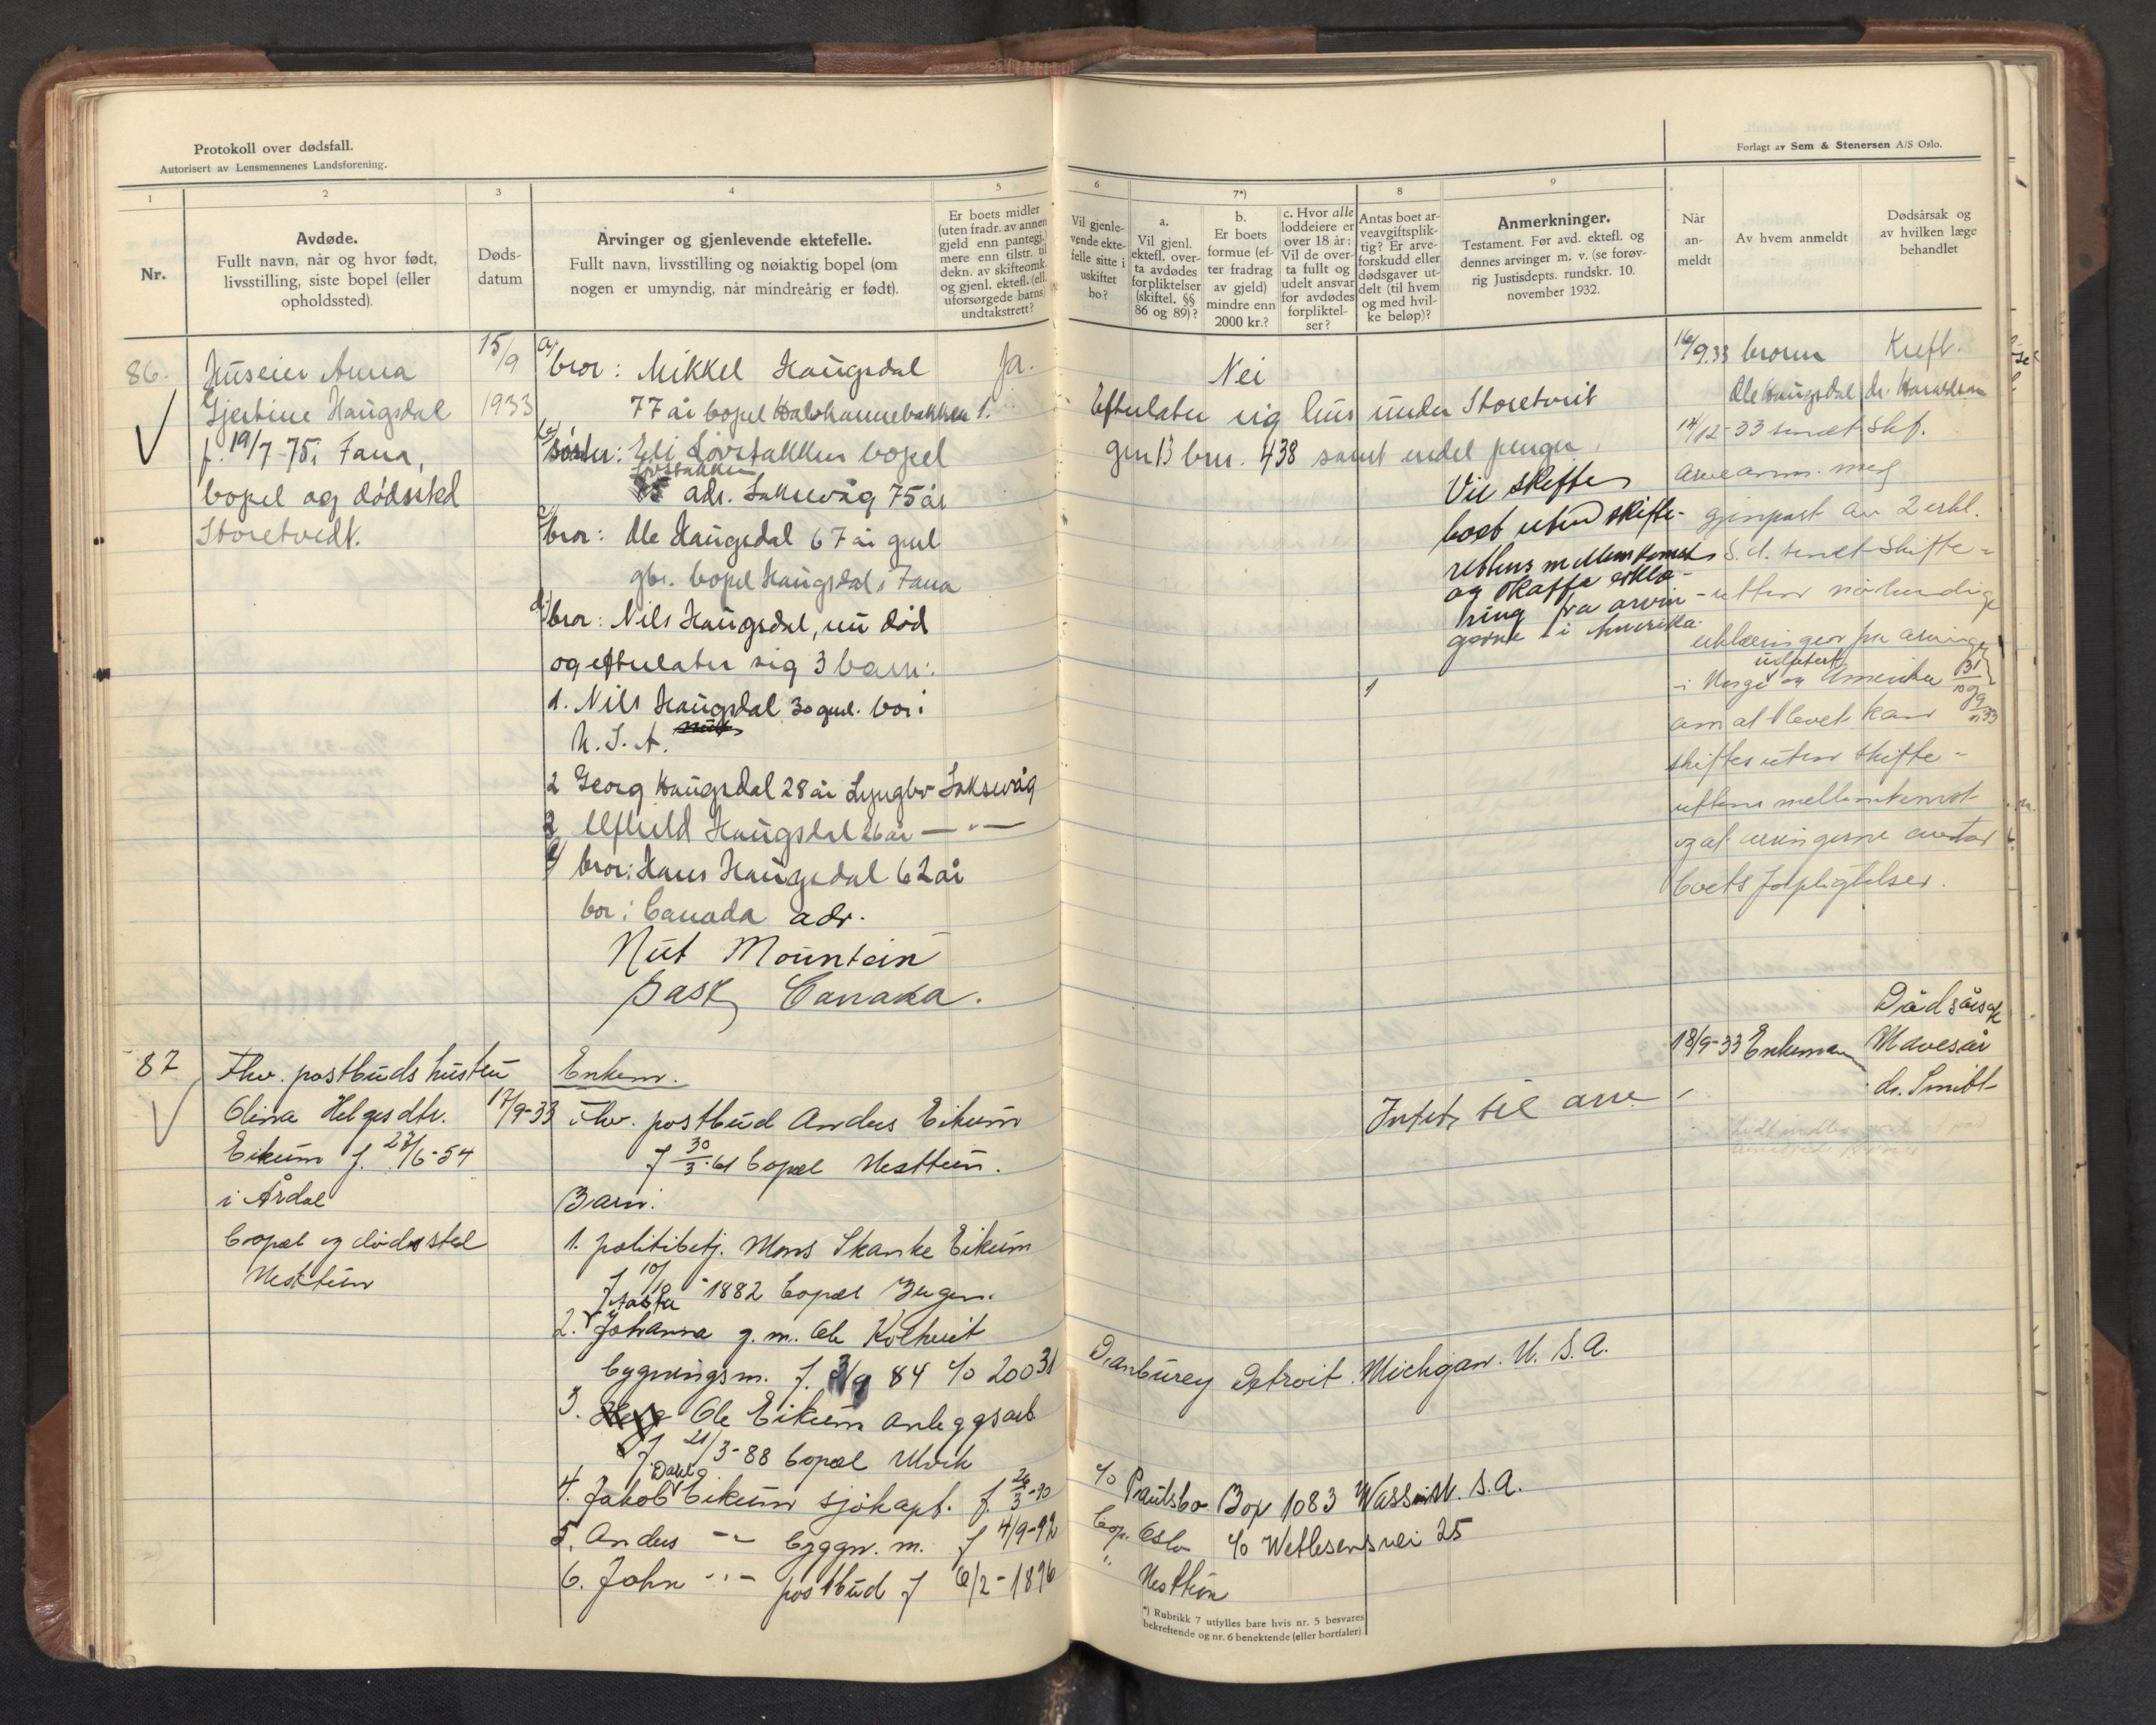 Protokoll over dødsfall.
Autorisert av Lensmennenes Landsforening.
Forlagt av Sem & Stenersen A/S Oslo.
1
2
3
4
5
6
7*)
8
9
Nr.
Avdøde.
Fullt navn, når og hvor født,
livsstilling, siste bopel (eller
opholdssted).
Døds-
datum
Arvinger og gjenlevende ektefelle.
Fullt navn, livsstilling og nøiaktig bopel (om
nogen er umyndig, når mindreårig er født).
Er boets midler
(uten fradr. av annen
gjeld enn pantegj.)
mere enn tilstr. til
dekn. av skifteomk.
og gjenl. ektefl. (ell.
uforsørgede barns)
undtakstrett?
Vil gjenle-
vende ekte-
felle sitte i
uskiftet
bo?
a.
Vil gjenl.
ektefl. over-
ta avdødes
forpliktelser
(skiftel. §§
86 og 89)?
b.
Er boets
formue (ef-
ter fradrag
av gjeld)
mindre enn
2000 kr.?
c. Hvor alle
loddeiere er
over 18 år:
Vil de over-
ta fullt og
udelt ansvar
for avdødes
forpliktel-
ser?
Antas boet ar-
veavgiftsplik-
tig? Er arve-
forskudd eller
dødsgaver ut-
delt (til hvem
og med hvil-
ke beløp)?
Anmerkninger.
Testament. Før avd. ektefl. og
dennes arvinger m. v. (se forøv-
rig Justisdepts. rundskr. 10.
november 1932.
Når
an-
meldt
Av hvem anmeldt
Dødsårsak og
av hvilken læge
behandlet
86.
Huseier Anna
Gjertine Haugsdal
f. 19/7-75 i Fana,
bopel og dødssted
Storetvedt.
15/9
1933
a) bror: Mikkel Haugsdal
77 år bopel Kalvkannebakken 1.
b) søster: Eli Løvstakken bopel
Løvstakken
adr. Laksevåg 75 år
c) bror: Ole Haugsdal 67 år gml
gbr. bopel Haugsdal i Fana
d) bror: Nils Haugsdal, nu død
og efterlater sig 3 barn:
1. Nils Haugsdal 30 gml. bor i
U.S.A.
2 Georg Haugsdal 28 år Lyngbø Laksevåg
3 Alfhild Haugsdal 26 år — " —
e) bror: Hans Haugsdal 62 år
bor i Canada adr.
Nut Mountain
Sask, Canada.
Ja.
Nei
Efterlater sig hus under Storetveit
gnr 13 brn. 438 samt endel penger.
Vil skifte
boet uten skifte-
rettens mellemkomst
og skaffe erklæ-
ring fra arvin-
gerne i Amerika.
16/9.33 broren
Ole Haugsdal
Kreft.
dr. Haraldsen
14/12-33 sendt Skf.
arveanm. med
gjenpart av 2 erkl.
S. d. sendt skifte-
retten nødvendige
erklæringer fra arvinger
i Norge og Amerika
utstedt 31/10 9/11 33
om at boet kan
skiftes uten skifte-
rettens mellemkomst
og at arvingerne overtar
boets forpligtelser.
87
Fhv. postbuds hustru
Olina Helgesdtr.
Eikum f. 27/6-54
i Årdal
bopel og dødssted
Nesttun
17/9-33
Enkem.
Fhv. postbud Anders Eikum
f 30/3-61 bopel Nesttun.
Barn:
1. politibetj. Mons Skanke Eikum
f 10/10-1882 bopel Bergen.
Aasta
2. Johanna g. m. Ole Kolhveit
bygningsm. f. 3/9 84 c/o 20031
Danburey Detroit. Michigan. U. S. A.
3. Ole Eikum anleggsarb.
f. 21/3-88 bopel Ulvik
Dahl
4. Jakob Eikum sjøkapt. f. 26/3-90
c/o Paulsbo Box 1083 Wass. U. S. A.
5. Anders — " — byggn. m. f 4/9-92
bop. Oslo c/o Wetlesensvei 25
6. John — " — postbud f 6/2-1896
" Nesttun
Intet til arv
18/9-33 Enkemann
Dødsårsak
Mavesår
dr. Smitt
*) Rubrikk 7 utfylles bare hvis nr. 5 besvares
bekreftende og nr. 6 benektende (eller bortfaler)